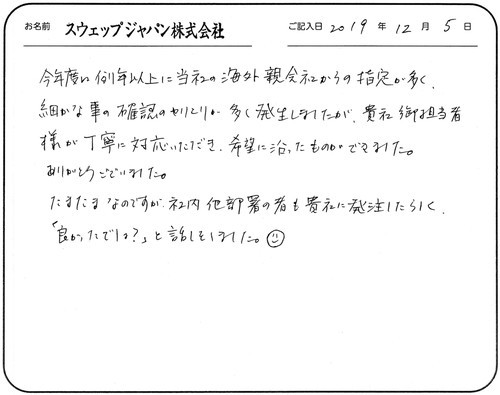 お名前 スウェップジャパン株式会社 ご記入日 2019 年 12 月 5 日
今年度は例年以上に当社の海外親会社からの指定が多く、
細かな事の確認のやりとりが多く発生しましたが、貴社御担当者
様が丁寧に対応いただき、希望に沿ったものができました。
ありがとうございました。
たまたまなのですが、社内他部署の者も貴社に発注したらしく、
「良かったでしょ?」と話しをしました。☺